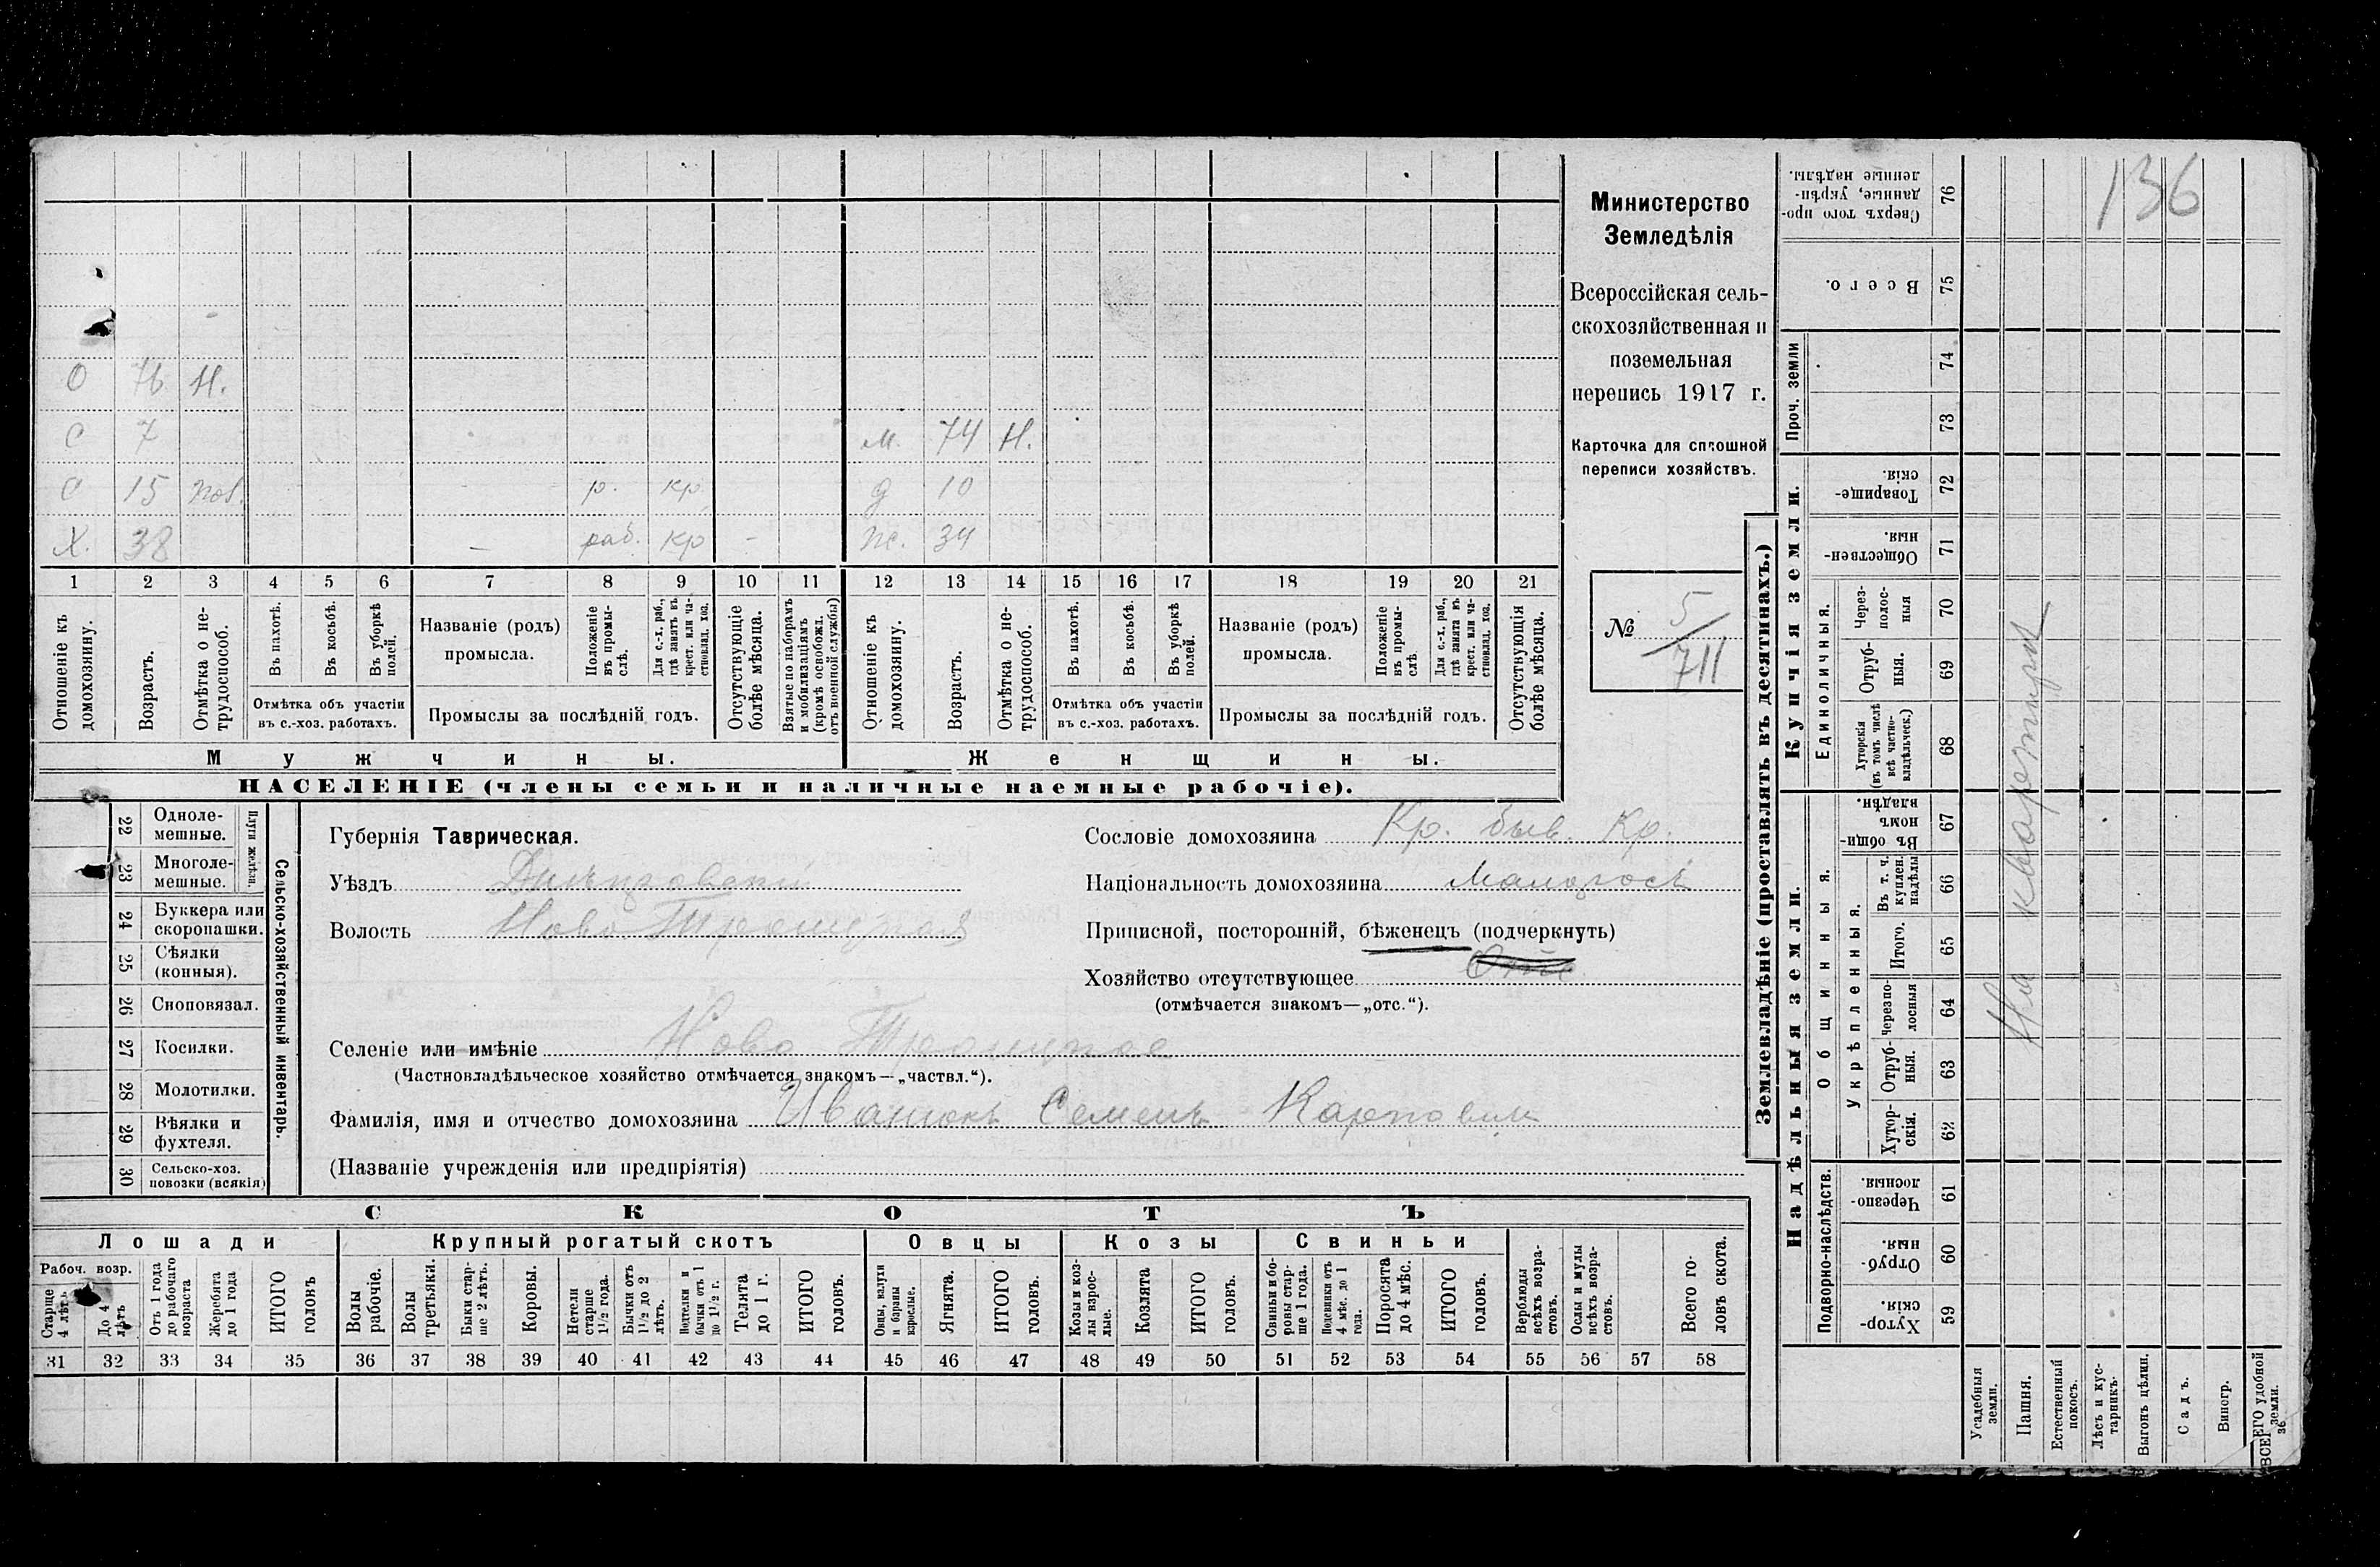 О 76 Н.
С 7 м. 74 Н.
С 15 р. кр. д 10
Х. 38 — раб. кр - ж. 34
1 2 3 4 5 6 7 8 9 10 11 12 13 14 15 16 17 18 19 20 21
Отношеніе къ домохозяину.
Возрастъ.
Отмѣтка о нетрудоспособ.
Въ пахотѣ.
Въ косьбѣ.
Въ уборкѣ полей.
Отмѣтка объ участіи
въ с.-хоз. работахъ.
Названіе (родъ)
промысла.
Положеніе въ промы-слѣ.
Для с.-х. раб., гдѣ занятъ въ крест. или ча-стновлад. хоз.
Промыслы за послѣдній годъ.
Отсутствующіе болѣе мѣсяца.
Взятые по наборамъ и мобилизаціямъ (кромѣ освобожд. отъ военной службы)
Отношеніе къ домохозяину.
Возрастъ.
Отмѣтка о не-трудоспособ.
Въ пахотѣ.
Въ косьбѣ.
Въ уборкѣ полей.
Отмѣтка объ участіи
въ с.-хоз. работахъ.
Названіе (родъ)
промысла.
Положеніе въ промы-слѣ
Для с.-х. раб., гдѣ занята въ крест. или ча-стновлад. хоз.
Промыслы за послѣдній годъ.
Отсутствующія болѣе мѣсяца.
Мужчины. Женщины.
НАСЕЛЕНІЕ (члены семьи и наличные наемные рабочіе).
Министерство
Земледѣлія
Всероссійская сель-
скохозяйственная и
поземельная
перепись 1917 г.
Карточка для сплошной
переписи хозяйствъ.
№ 5/711
Сельско-хозяйственный инвентарь.
Плуги желѣзн.
22 Одноле-
мешные.
23 Многоле-
мешные.
24 Буккера или
скоропашки.
25 Сѣялки
(конныя).
26 Сноповязал.
27 Косилки.
28 Молотилки.
29 Вѣялки и
фухтеля.
30 Сельско-хоз.
повозки (всякія)
Губернія Таврическая.
Уѣздъ Днѣпровскій
Волость Ново Троицкая
Селеніе или имѣніе Ново Троицкое
(Частновладѣльческое хозяйство отмѣчается знакомъ—„частвл.“).
Фамилія, имя и отчество домохозяина Иванюкъ Семенъ Карпович
(Названіе учрежденія или предпріятія)
Сословіе домохозяина Кр. быв. Кр.
Національность домохозяина Малорос
Приписной, посторонній, бѣженецъ (подчеркнуть)
Хозяйство отсутствующее
(отмѣчается знакомъ—„отс.“).
СКОТЪ
Лошади Крупный рогатый скотъ Овцы Козы Свиньи
Рабоч. возр.
Старше 4 лѣтъ
До 4 лѣтъ
Отъ 1 года до рабочаго возраста
Жеребята до 1 года
ИТОГО головъ
Волы рабочіе.
Волы третьяки.
Быки стар-ше 2 лѣтъ.
Коровы.
Нетели старше 1½ года.
Бычки отъ 1½ до 2 лѣтъ.
Подтелки и бычки отъ 1 до 1½ г.
Телята до 1 г.
ИТОГО головъ.
Овцы, валухи и бараны взрослые.
Ягнята.
ИТОГО головъ.
Козы и коз-лы взрос-лые.
Козлята
ИТОГО головъ.
Свиньи и бо-ровы стар-ше 1 года.
Подсвинки отъ 4 мѣс. до 1 года.
Поросята до 4 мѣс.
ИТОГО головъ.
Верблюды всѣхъ возра-стовъ.
Ослы и мулы всѣхъ возра-стовъ.
Всего го-ловъ скота.
31 32 33 34 35 36 37 38 39 40 41 42 43 44 45 46 47 48 49 50 51 52 53 54 55 56 57 58
Землевладѣніе (проставлять въ десятинахъ.)
Надѣльныя земли. Купчія земли.
Проч. земли
Подворно-наслѣдств.
Общинныя.
Укрѣпленныя.
Единоличныя.
Сверхъ того про-данные, укрѣп-ленные надѣлы. 76
136
Всего. 75
74
73
Товарище-скія. 72
Обществен-ныя. 71
Через-полос-ныя 70
Отруб-ныя. 69
Хуторскія (въ томъ числѣ всѣ частно-владѣльческ.) 68
Въ общи-номъ владѣн. 67
Въ т. ч. куплен. надѣлы 66
Итого. 65
Черезпо-лосныя 64
Отруб-ныя. 63
Хутор-скія. 62
Черезпо-лосныя. 61
Отруб-ныя. 60
Хутор-скія. 59
На квартирѣ
Усадебныя земли.
Пашня.
Естественный покосъ.
Лѣсъ и кус-тарникъ.
Выгонъ цѣлин.
Садъ.
Виногр.
ВСЕГО удобной земли.